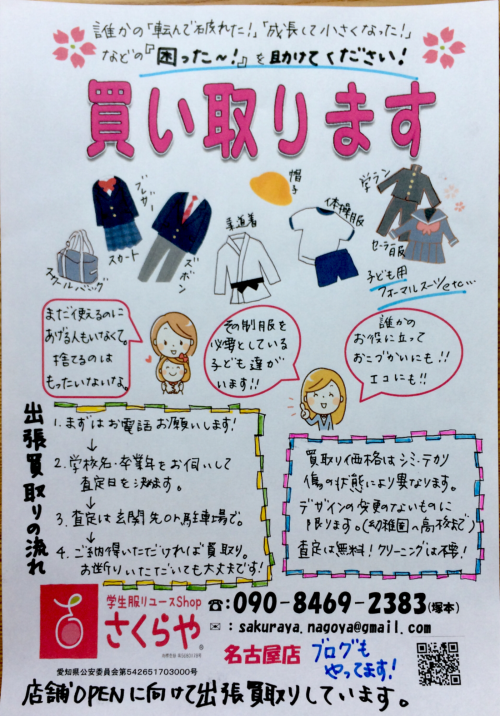 誰かの「転んで破れた!」「成長して小さくなった!」
などの『困った〜!』を助けてください!
買い取ります
ブレザー
スカート
スクールバッグ
ズボン
柔道着
帽子
体操服
学ラン
セーラー服
子ども用
フォーマルスーツetc…
まだ使えるのに
あげる人もいなくて。
捨てるのは
もったいないなぁ。
その制服を
必要としている
子ども達が
います!!
誰かの
お役に立って
おこづかいにも!!
エコにも!!
出張買取りの流れ
1.まずはお電話お願いします!
↓
2.学校名・卒業年をお伺いして
査定日を決めます。
↓
3.査定は玄関先or駐車場で。
↓
4.ご納得いただければ買取り。
お断りいただいても大丈夫です!
買取り価格はシミ・テカリ
傷の状態により異なります。
デザインの変更のないものに
限ります。(幼稚園〜高校まで)
査定は無料!クリーニングは不要!
学生服リユースShop
さくらや
®
愛知県公安委員会第542651703000号
☎:090-8469-2383(塚本)
✉:sakuraya.nagoya@gmail.com
名古屋店
ブログも
やってます!
店舗OPENに向けて出張買取りしています。